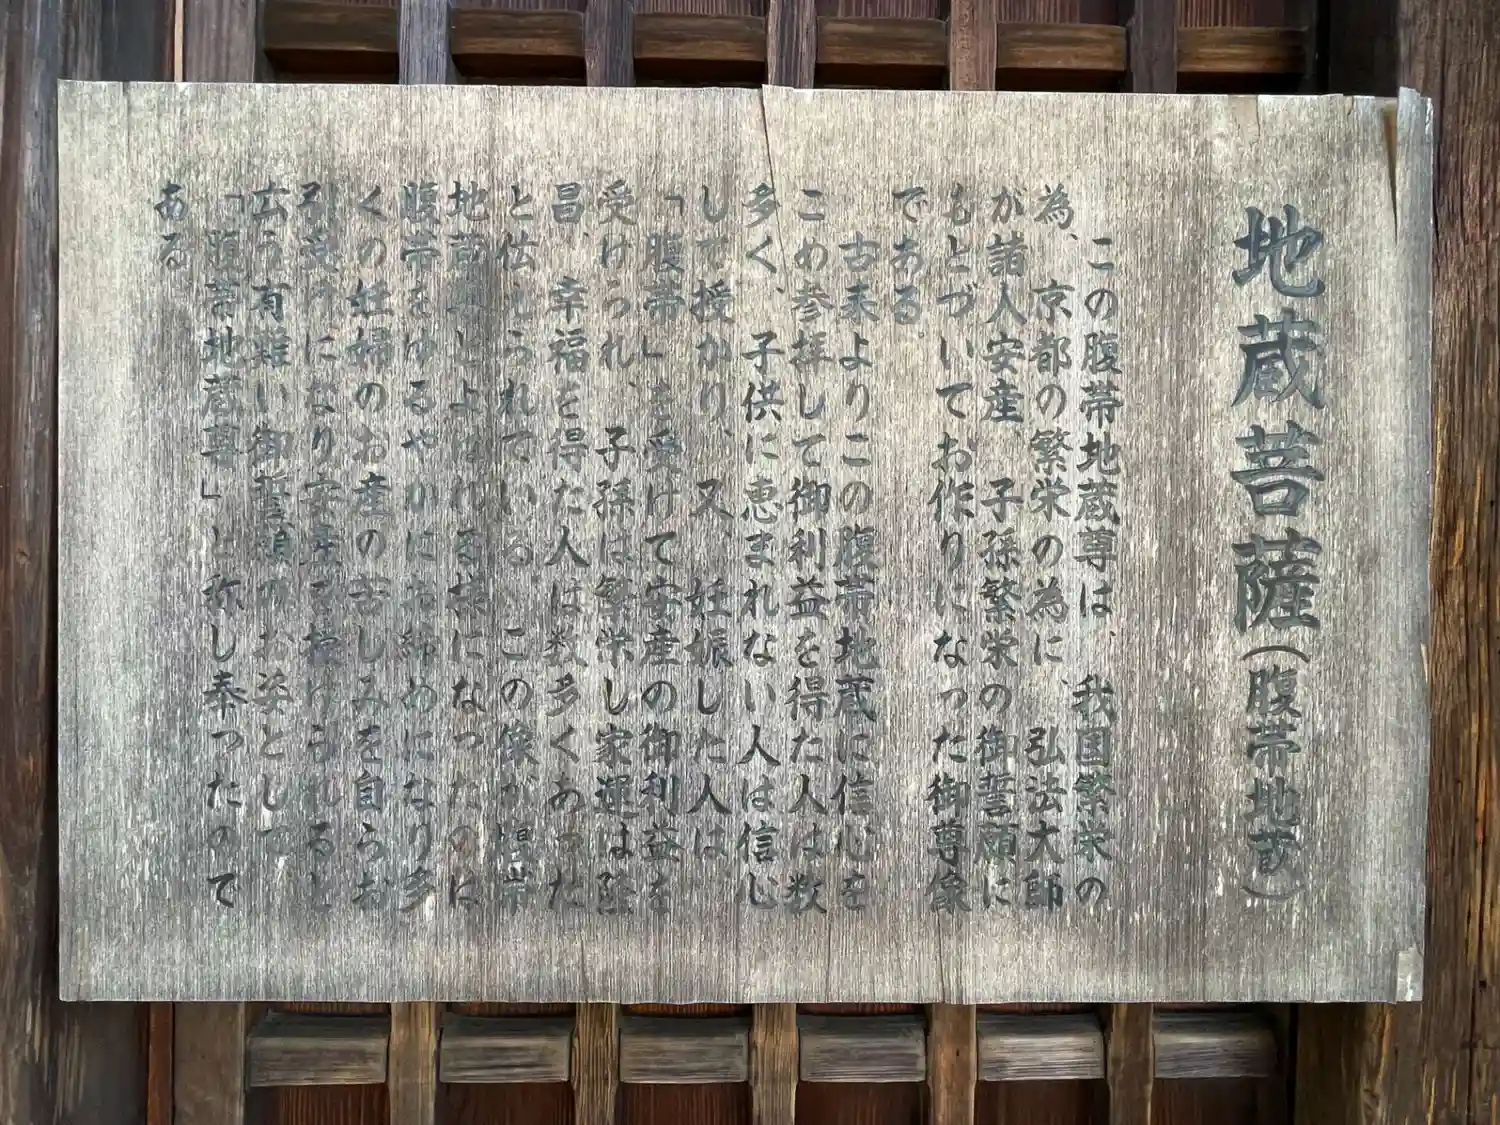 地蔵菩薩(腹帯地蔵)
この腹帯地蔵尊は、我国繁栄の
為、京都の繁栄の為に、弘法大師
が諸人安産、子孫繁栄の御誓願に
もとづいてお作りになった御尊像
である。
古来よりこの腹帯地蔵に信心を
こめ参拝して御利益を得た人は数
多く、子供に恵まれない人は信じ
して授かり、又、妊娠した人は、
「腹帯」を受けて安産の御利益を
受けられ、子孫は繁栄し家運は隆
昌、幸福を得た人は数多くあった
と伝えられている。この像が腹帯
地蔵尊とよばれる様になったのは
腹帯をゆるやかにお締めになり多
くの妊婦のお産の苦しみを自らお
引受けになり安産を授けられると
広う有難い御誓願のお姿として
「腹帯地蔵尊」と称し奉ったので
ある